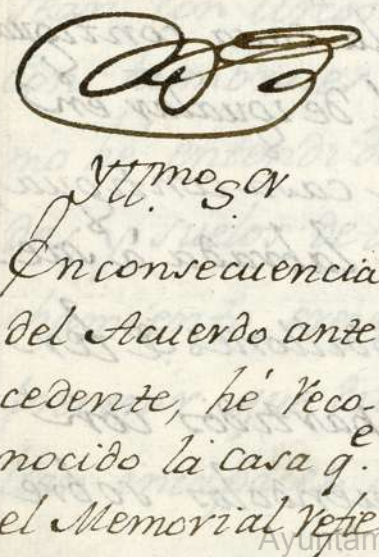 Yll.mo Sor
En consecuencia
del Acuerdo ante
cedente, hé reco-
nocido la casa q.e
el Memorial refie
Ayuntam